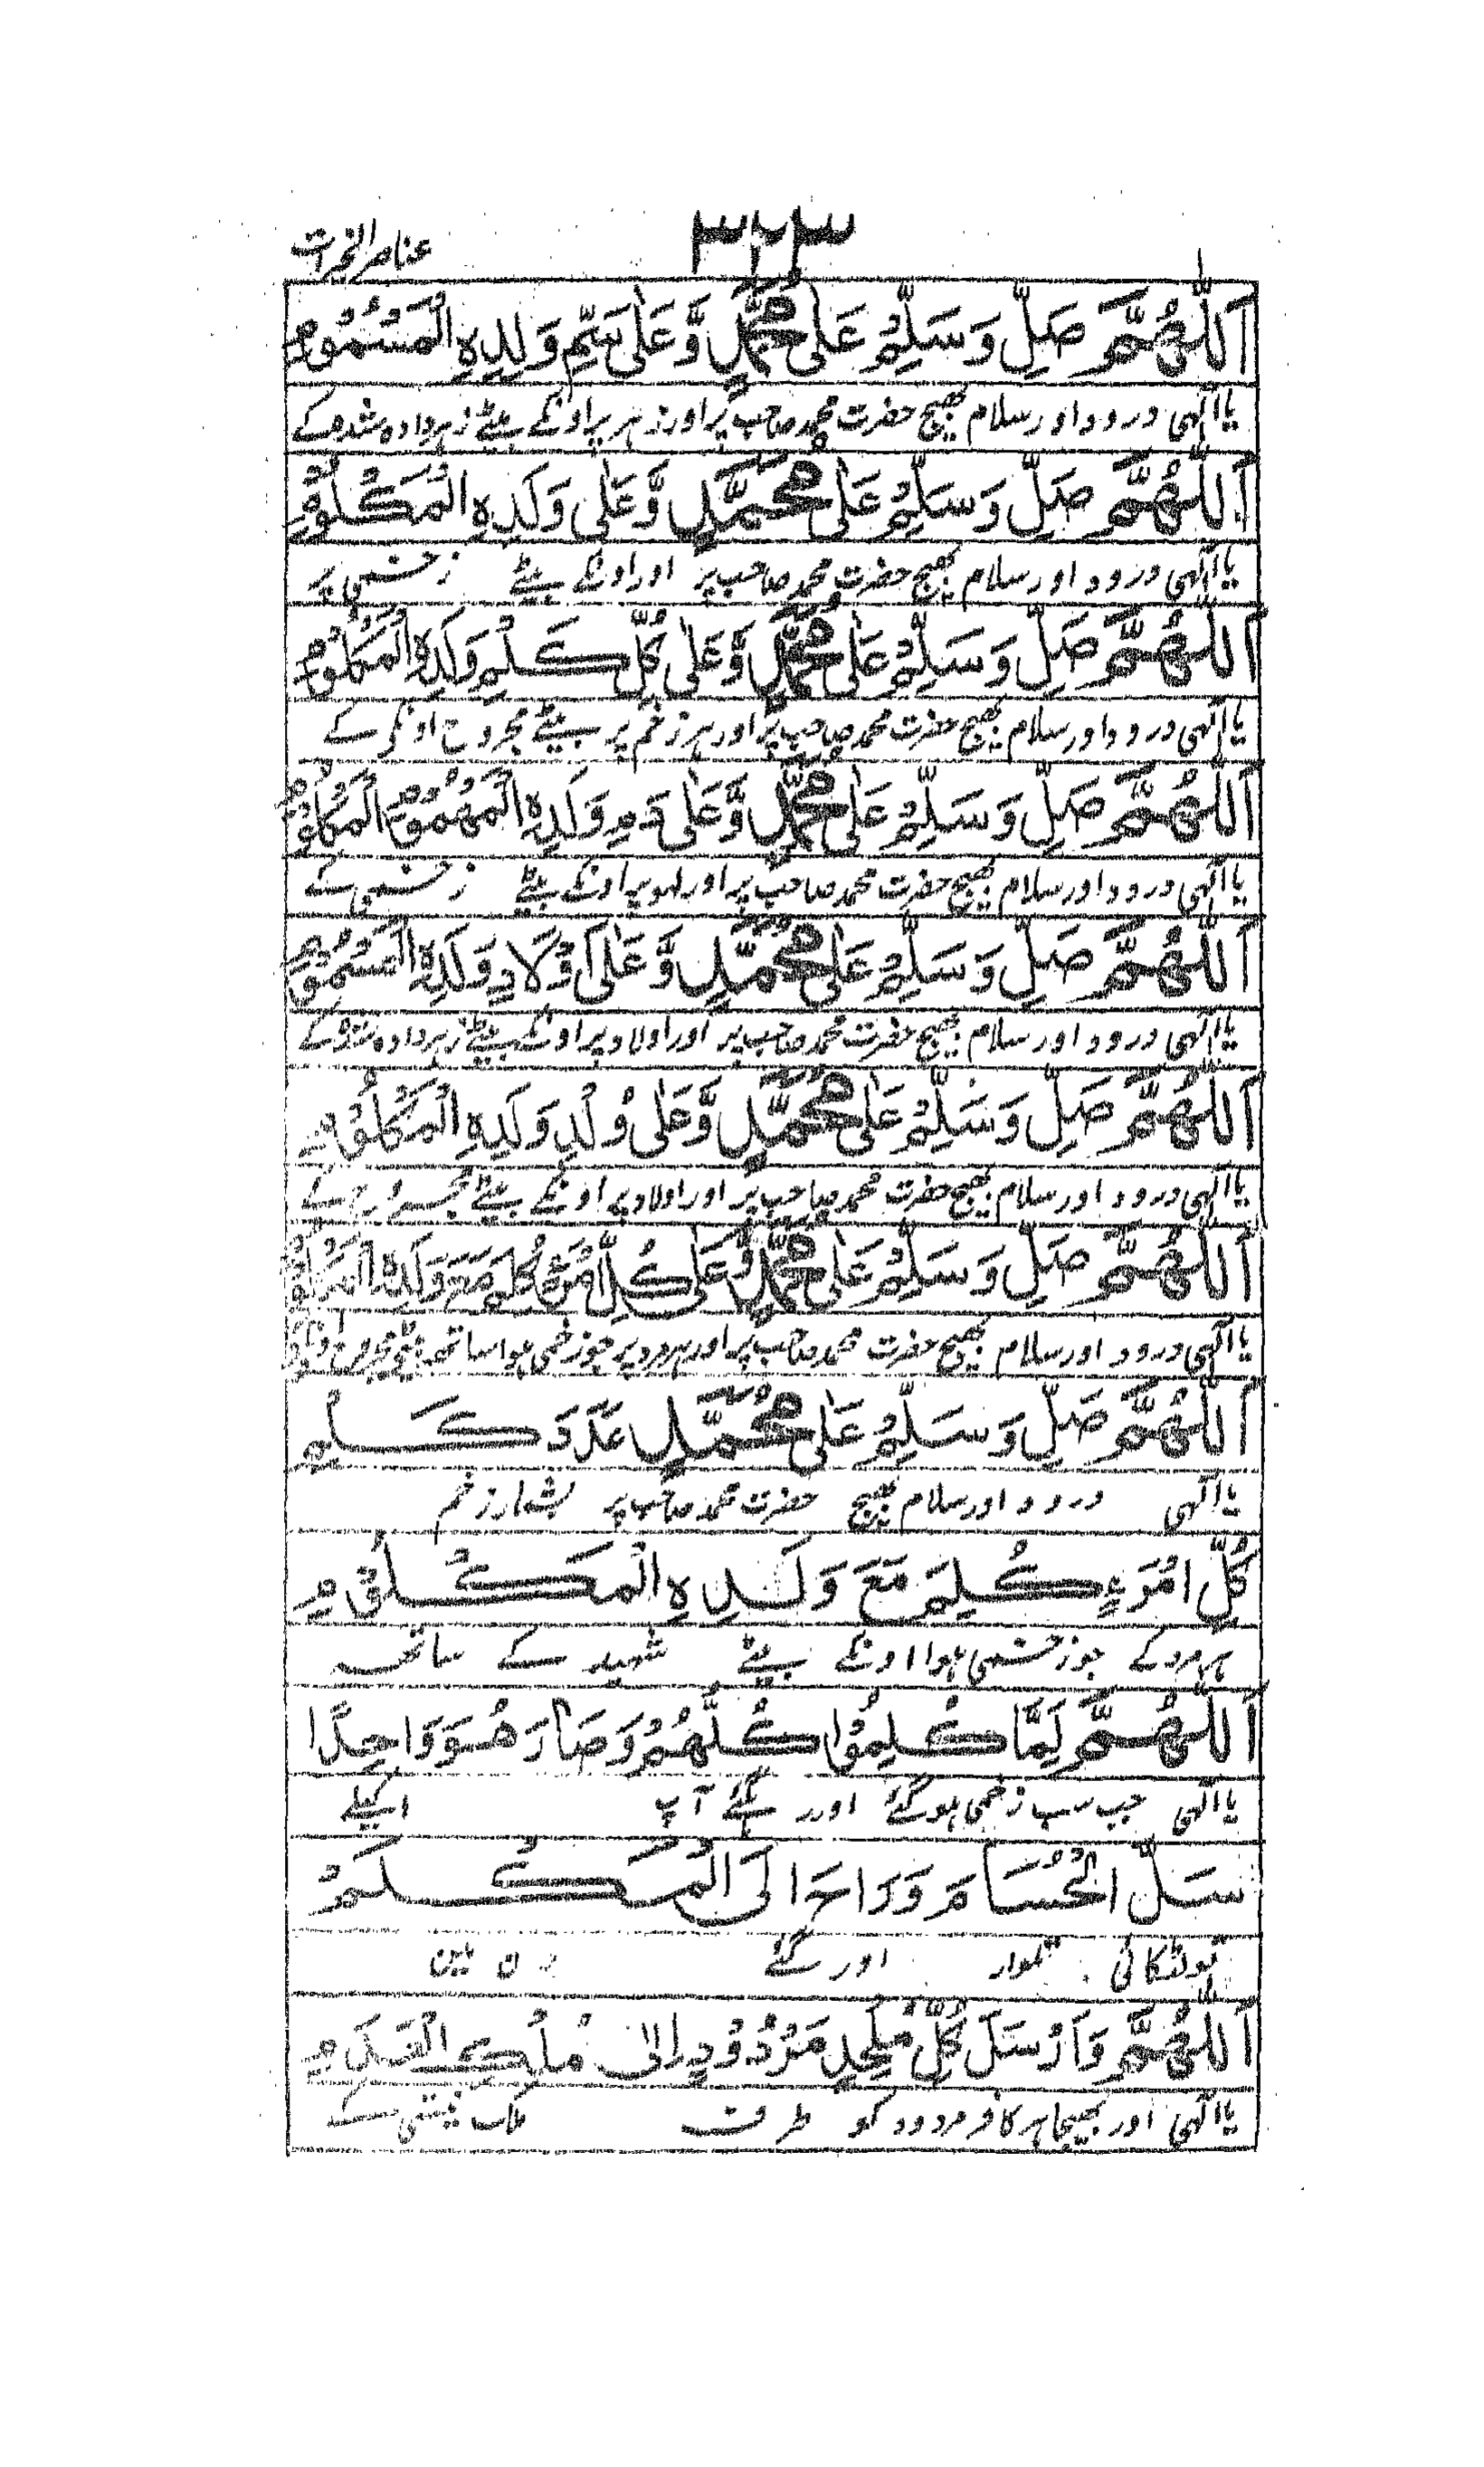 ۳۲۳
عناصر الخیرات
اَللّٰهُمَّ صَلِّ وَسَلِّمْ عَلٰی مُحَمَّدٍ وَّعَلٰی سَمِّ وَلَدِهِ الْمَسْمُوْمِ
یا الٰہی درود اور سلام بھیج حضرت محمد صاحب پر اور زہر پر اونکے بیٹے زہر دادہ شدہ کے
اَللّٰهُمَّ صَلِّ وَسَلِّمْ عَلٰی مُحَمَّدٍ وَّعَلٰی وَلَدِهِ الْمَكْلُوْمِ
یا الٰہی درود اور سلام بھیج حضرت محمد صاحب پر اور اونکے بیٹے زخمی پر
اَللّٰهُمَّ صَلِّ وَسَلِّمْ عَلٰی مُحَمَّدٍ وَّعَلٰی كُلِّ كَلْمِ وَلَدِهِ الْمَكْلُوْمِ
یا الٰہی درود اور سلام بھیج حضرت محمد صاحب پر اور ہر زخم پر بیٹے مجروح اونکی کے
اَللّٰهُمَّ صَلِّ وَسَلِّمْ عَلٰی مُحَمَّدٍ وَّعَلٰی دَمِ وَلَدِهِ الْمَهْمُوْمِ الْمَكْلُوْمِ
یا الٰہی درود اور سلام بھیج حضرت محمد صاحب پر اور لہو پر اونکے بیٹے زخمی کے
اَللّٰهُمَّ صَلِّ وَسَلِّمْ عَلٰی مُحَمَّدٍ وَّعَلٰی اَوْلَادِ وَلَدِهِ الْمَسْمُوْمِ
یا الٰہی درود اور سلام بھیج حضرت محمد صاحب پر اور اولاد پر اونکے بیٹے زہر دادہ شدہ کے
اَللّٰهُمَّ صَلِّ وَسَلِّمْ عَلٰی مُحَمَّدٍ وَّعَلٰی وُلْدِ وَلَدِهِ الْمَكْلُوْمِ
یا الٰہی درود اور سلام بھیج حضرت محمد صاحب پر اور اولاد پر اونکے بیٹے مجروح کے
اَللّٰهُمَّ صَلِّ وَسَلِّمْ عَلٰی مُحَمَّدٍ وَّعَلٰی كُلِّ امْرَءٍ كُلِمَ مَعَ وَلَدِهِ الْمَكْلُوْمِ
یا الٰہی درود اور سلام بھیج حضرت محمد صاحب پر اور ہر مرد پر جو زخمی ہوا ساتھ بیٹے مجروح
اَللّٰهُمَّ صَلِّ وَسَلِّمْ عَلٰی مُحَمَّدٍ عَدَدَ كَلْمِ
یا الٰہی درود اور سلام بھیج حضرت محمد صاحب پر بشمار زخم
كُلِّ امْرَءٍ كُلِمَ مَعَ وَلَدِهِ الْمَكْلُوْمِ
ہر مرد کے جو زخمی ہوا اونکے بیٹے شہید کے ساتھ
اَللّٰهُمَّ لَمَّا كُلِمُوْا كُلُّهُمْ وَصَارَ هُوَ وَاحِدًا
یا الٰہی جب سب زخمی ہوگئے اور گئے آپ اکیلے
سَلَّ الْحُسَامَ وَرَاحَ اِلَی الْمُكَلَّمِ
تو لٹکائی تلوار اور گئے رن میں
اَللّٰهُمَّ وَاَرْسَلَ كُلَّ مُلْحِدٍ مَرْدُوْدٍ اِلٰی مُلْكِ الْعَدَمِ
یا الٰہی اور بھیجا ہر کافر مردود کو طرف ملک نیستی کے